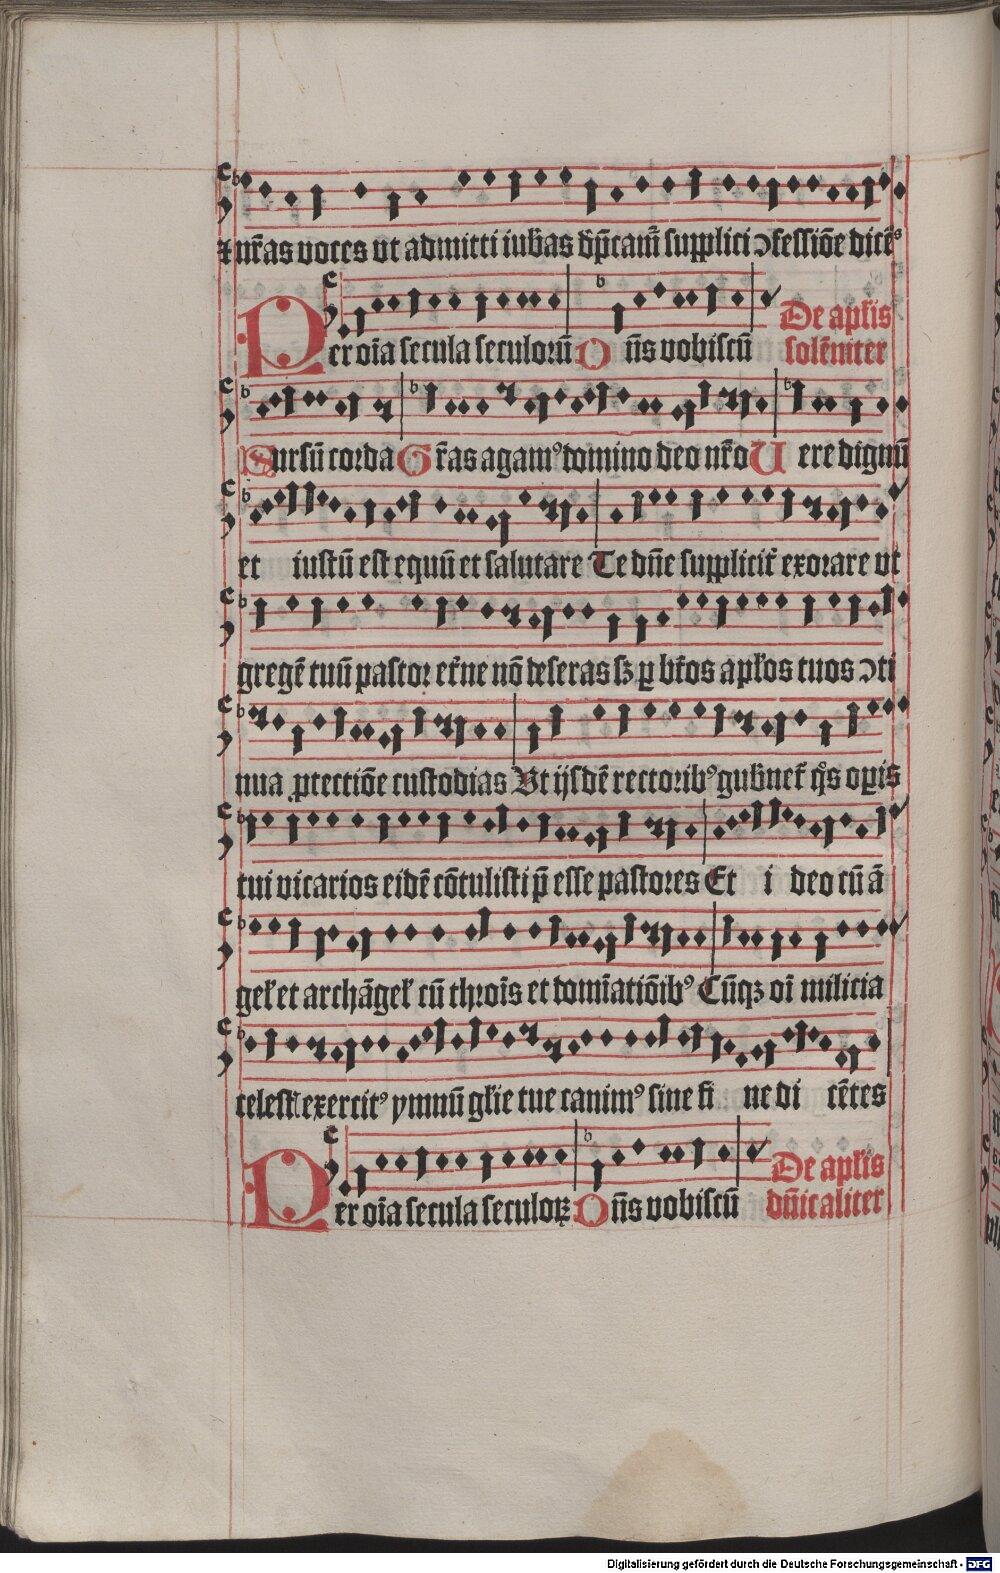 ⁊ nr̄as voces vt admitti iubeas dp̄cam̄ supplici ↄfessiōe dicētꝰ
Per oīa secula seculorū Dn̄s vobiscū
De apl̄is
solēniter
Sursū corda Gr̄as agamꝰ domino deo nr̄o Uere dignū
et iustū est equū et salutare Te dn̄e supplicit̄ exorare vt
gregē tuū pastor et̄ne nō deseras sꝫ ꝑ bt̄os apl̄os tuos ↄti
nua ꝓtectiōe custodias Ut ijsdē rectoribꝰ gub̄net̄ qͦs oꝑis
tui vicarios eidē cōtulisti p̄esse pastores Et ideo cū ā
gel̄ et archāgel̄ cū thronīs et domīatiōībꝰ Cūqꝫ oī milicia
celestꝭ exercitꝰ ymnū gl̄ie tue canimꝰ sine fine dicētes
Per oīa secula seculoꝝ Dn̄s vobiscū
De apl̄is
dn̄icaliter
Digitalisierung gefördert durch die Deutsche Forschungsgemeinschaft - DFG